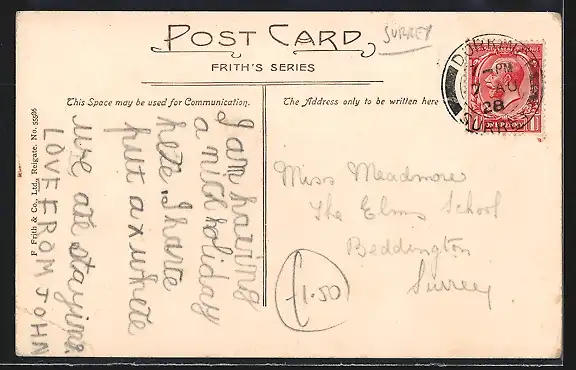 POST CARD
SURREY
FRITH'S SERIES
This Space may be used for Communication.
The Address only to be written here
F. Frith & Co., Ltd., Reigate. No. 55596
I am having
a nice holiday
here. I have
put a x where
we are staying.
LOVE FROM JOHN
Miss Meadmore
The Elms School
Beddington
Surrey
£1.50
DORKING
PM
AU
28
SURREY
ONE PENNY
1